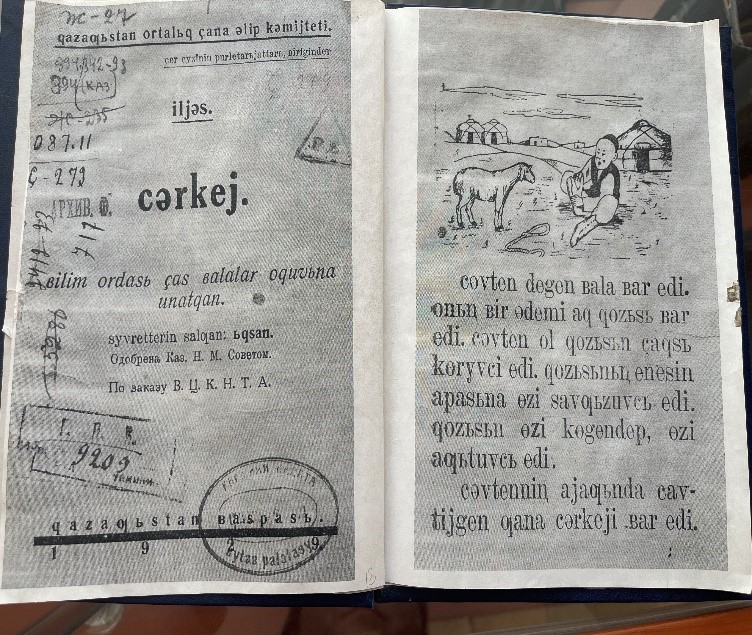 ж-27
qazaqьstan ortalьq çaꞑa əlip kəmijteti.
çer çyziniꞑ
394(КАЗ)
iljəs.
087.11
Ç-273
cərkej.
АРХИВ.
717
вilim ordasь ças вalalar oquvьna
unatqan.
syvretterin salqan: ьqsan.
Одобрена Каз. Н. М. Советом.
По заказу В. Ц. К. Н. Т. А.
9209
qazaqьstan вaspasь.
1 9 2 9
cəvten degen вala вar edi.
onьꞑ вir ədemi aq qozьsь вar
edi. cəvten ol qozьsьn çaqsь
kөryvci edi. qozьsьnьꞑ enesin
apasьna өzi savqьzuvcь edi.
qozьsьn өzi kөgendep, өzi
aqьtuvcь edi.
cəvtenniꞑ ajaqьnda çav-
tijgen qana cərkeji вar edi.